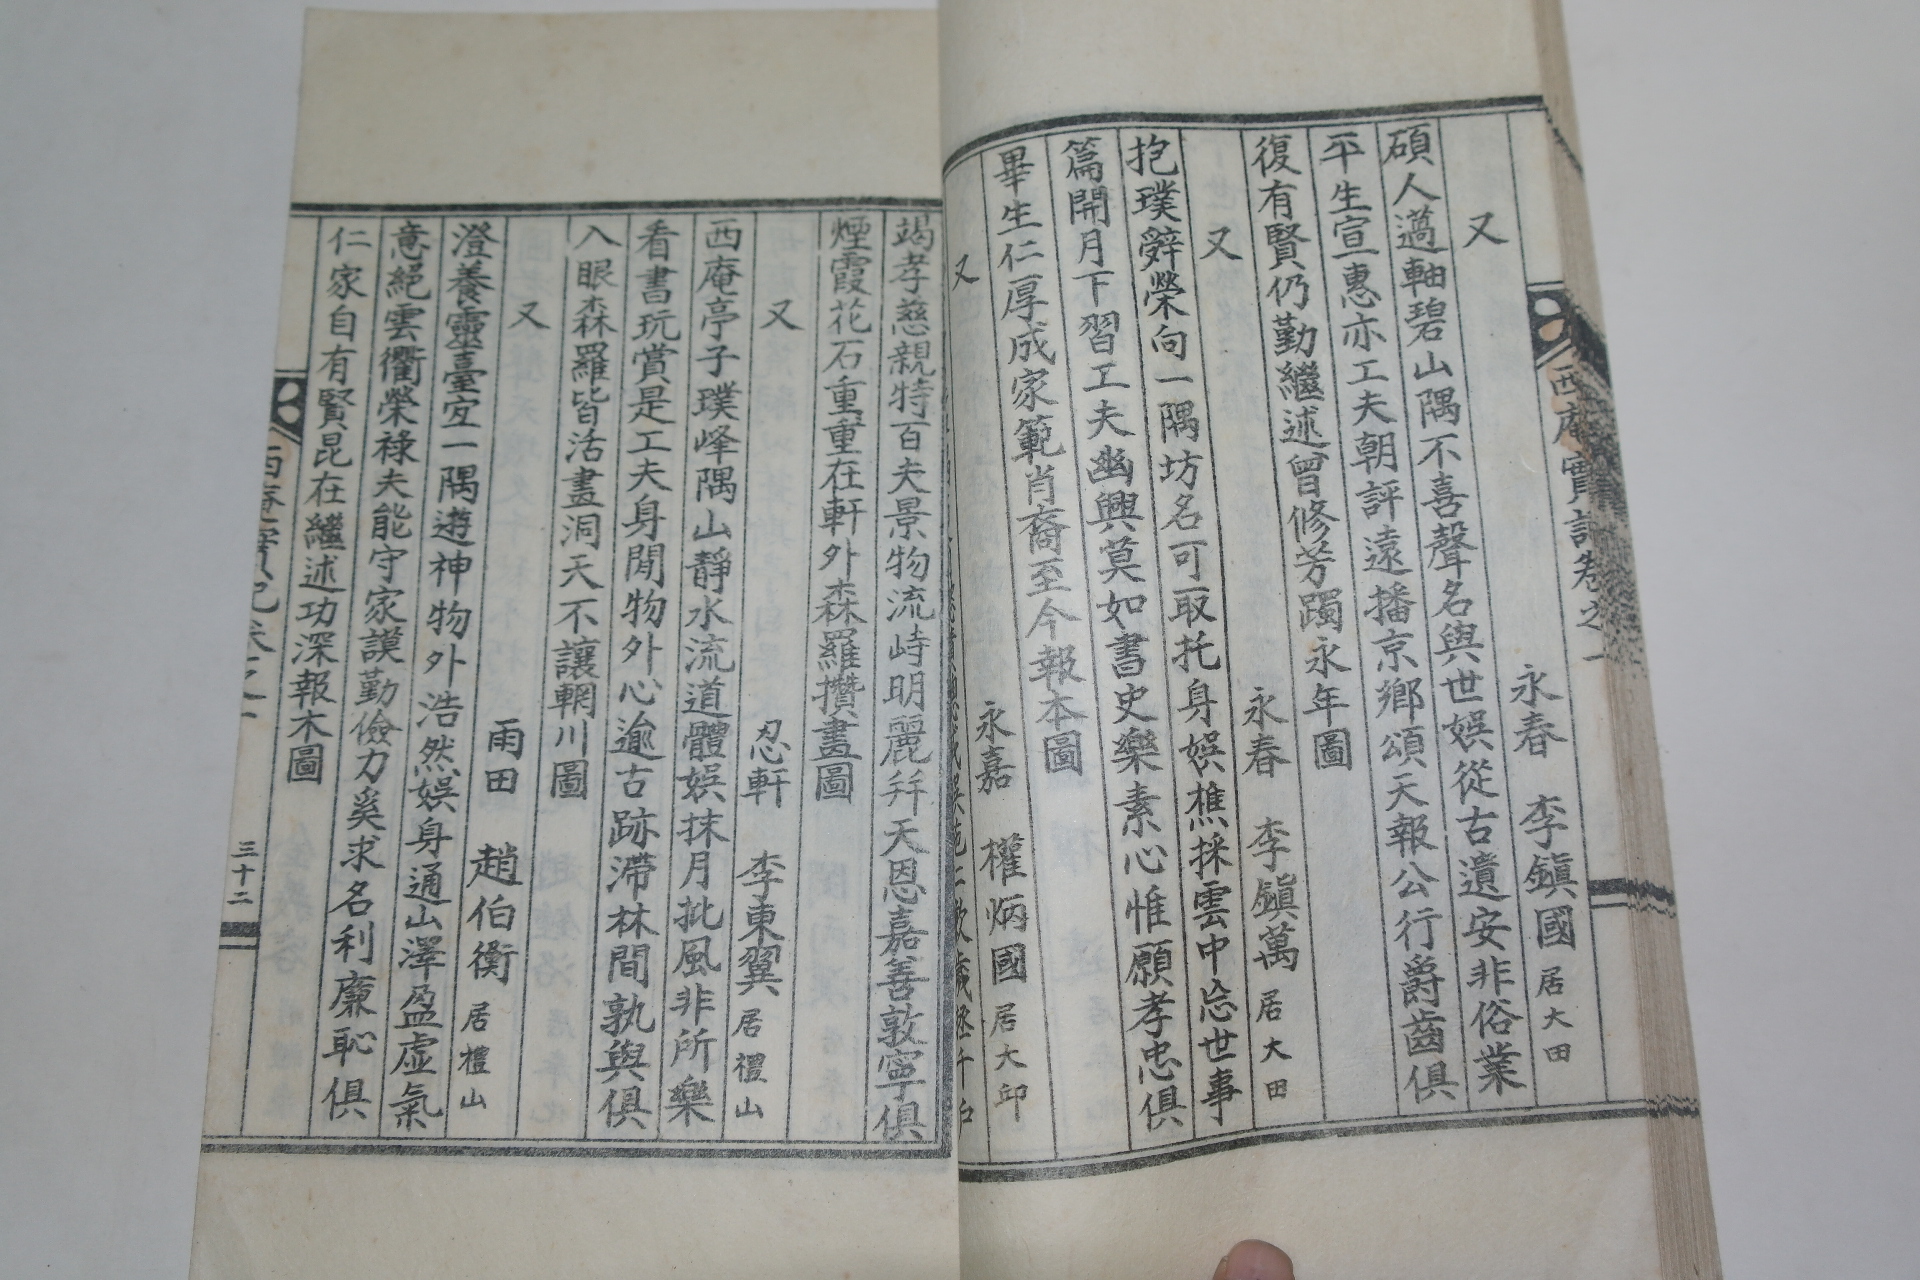 西庵實記卷之一
又　永春　李鎭國 居大田
碩人薖軸碧山隅不喜聲名與世娛從古遺安非俗業
平生宣惠亦工夫朝評遠播京鄉頌天報公行爵齒俱
復有賢仍勤繼述曾修芳躅永年圖
又　永春　李鎭萬 居大田
抱璞辭榮向一隅坊名可取托身娛樵採雲中忘世事
篇開月下習工夫幽興莫如書史樂素心惟願孝忠俱
畢生仁厚成家範肖裔至今報本圖
又　永嘉　權炳國 居大邱
竭孝慈親特百夫景物流峙明麗幷天恩嘉善敦寧俱
煙霞花石重重在軒外森羅攢畫圖
又　忍軒　李東翼 居禮山
西庵亭子璞峰隅山靜水流道體娛抹月批風非所樂
看書玩賞是工夫身閒物外心逾古跡滯林間孰與俱
入眼森羅皆活畫洞天不讓輞川圖
又　雨田　趙伯衡 居禮山
澄養靈臺宜一隅遊神物外浩然娛身通山澤盈虛氣
意絕雲衢榮祿夫能守家謨勤儉力奚求名利廉恥俱
仁家自有賢昆在繼述功深報本圖
西庵實記卷之一　三十二